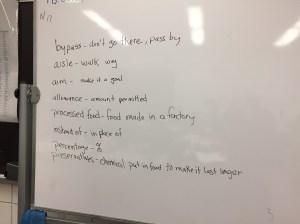 N17
bypass - don't go there, pass by
aisle - walk, way
aim - make it a goal
allowance - amount permitted
processed food - food made in a factory
instead of - in place of
percentage - %
preservatives - chemical put in food to make it last longer